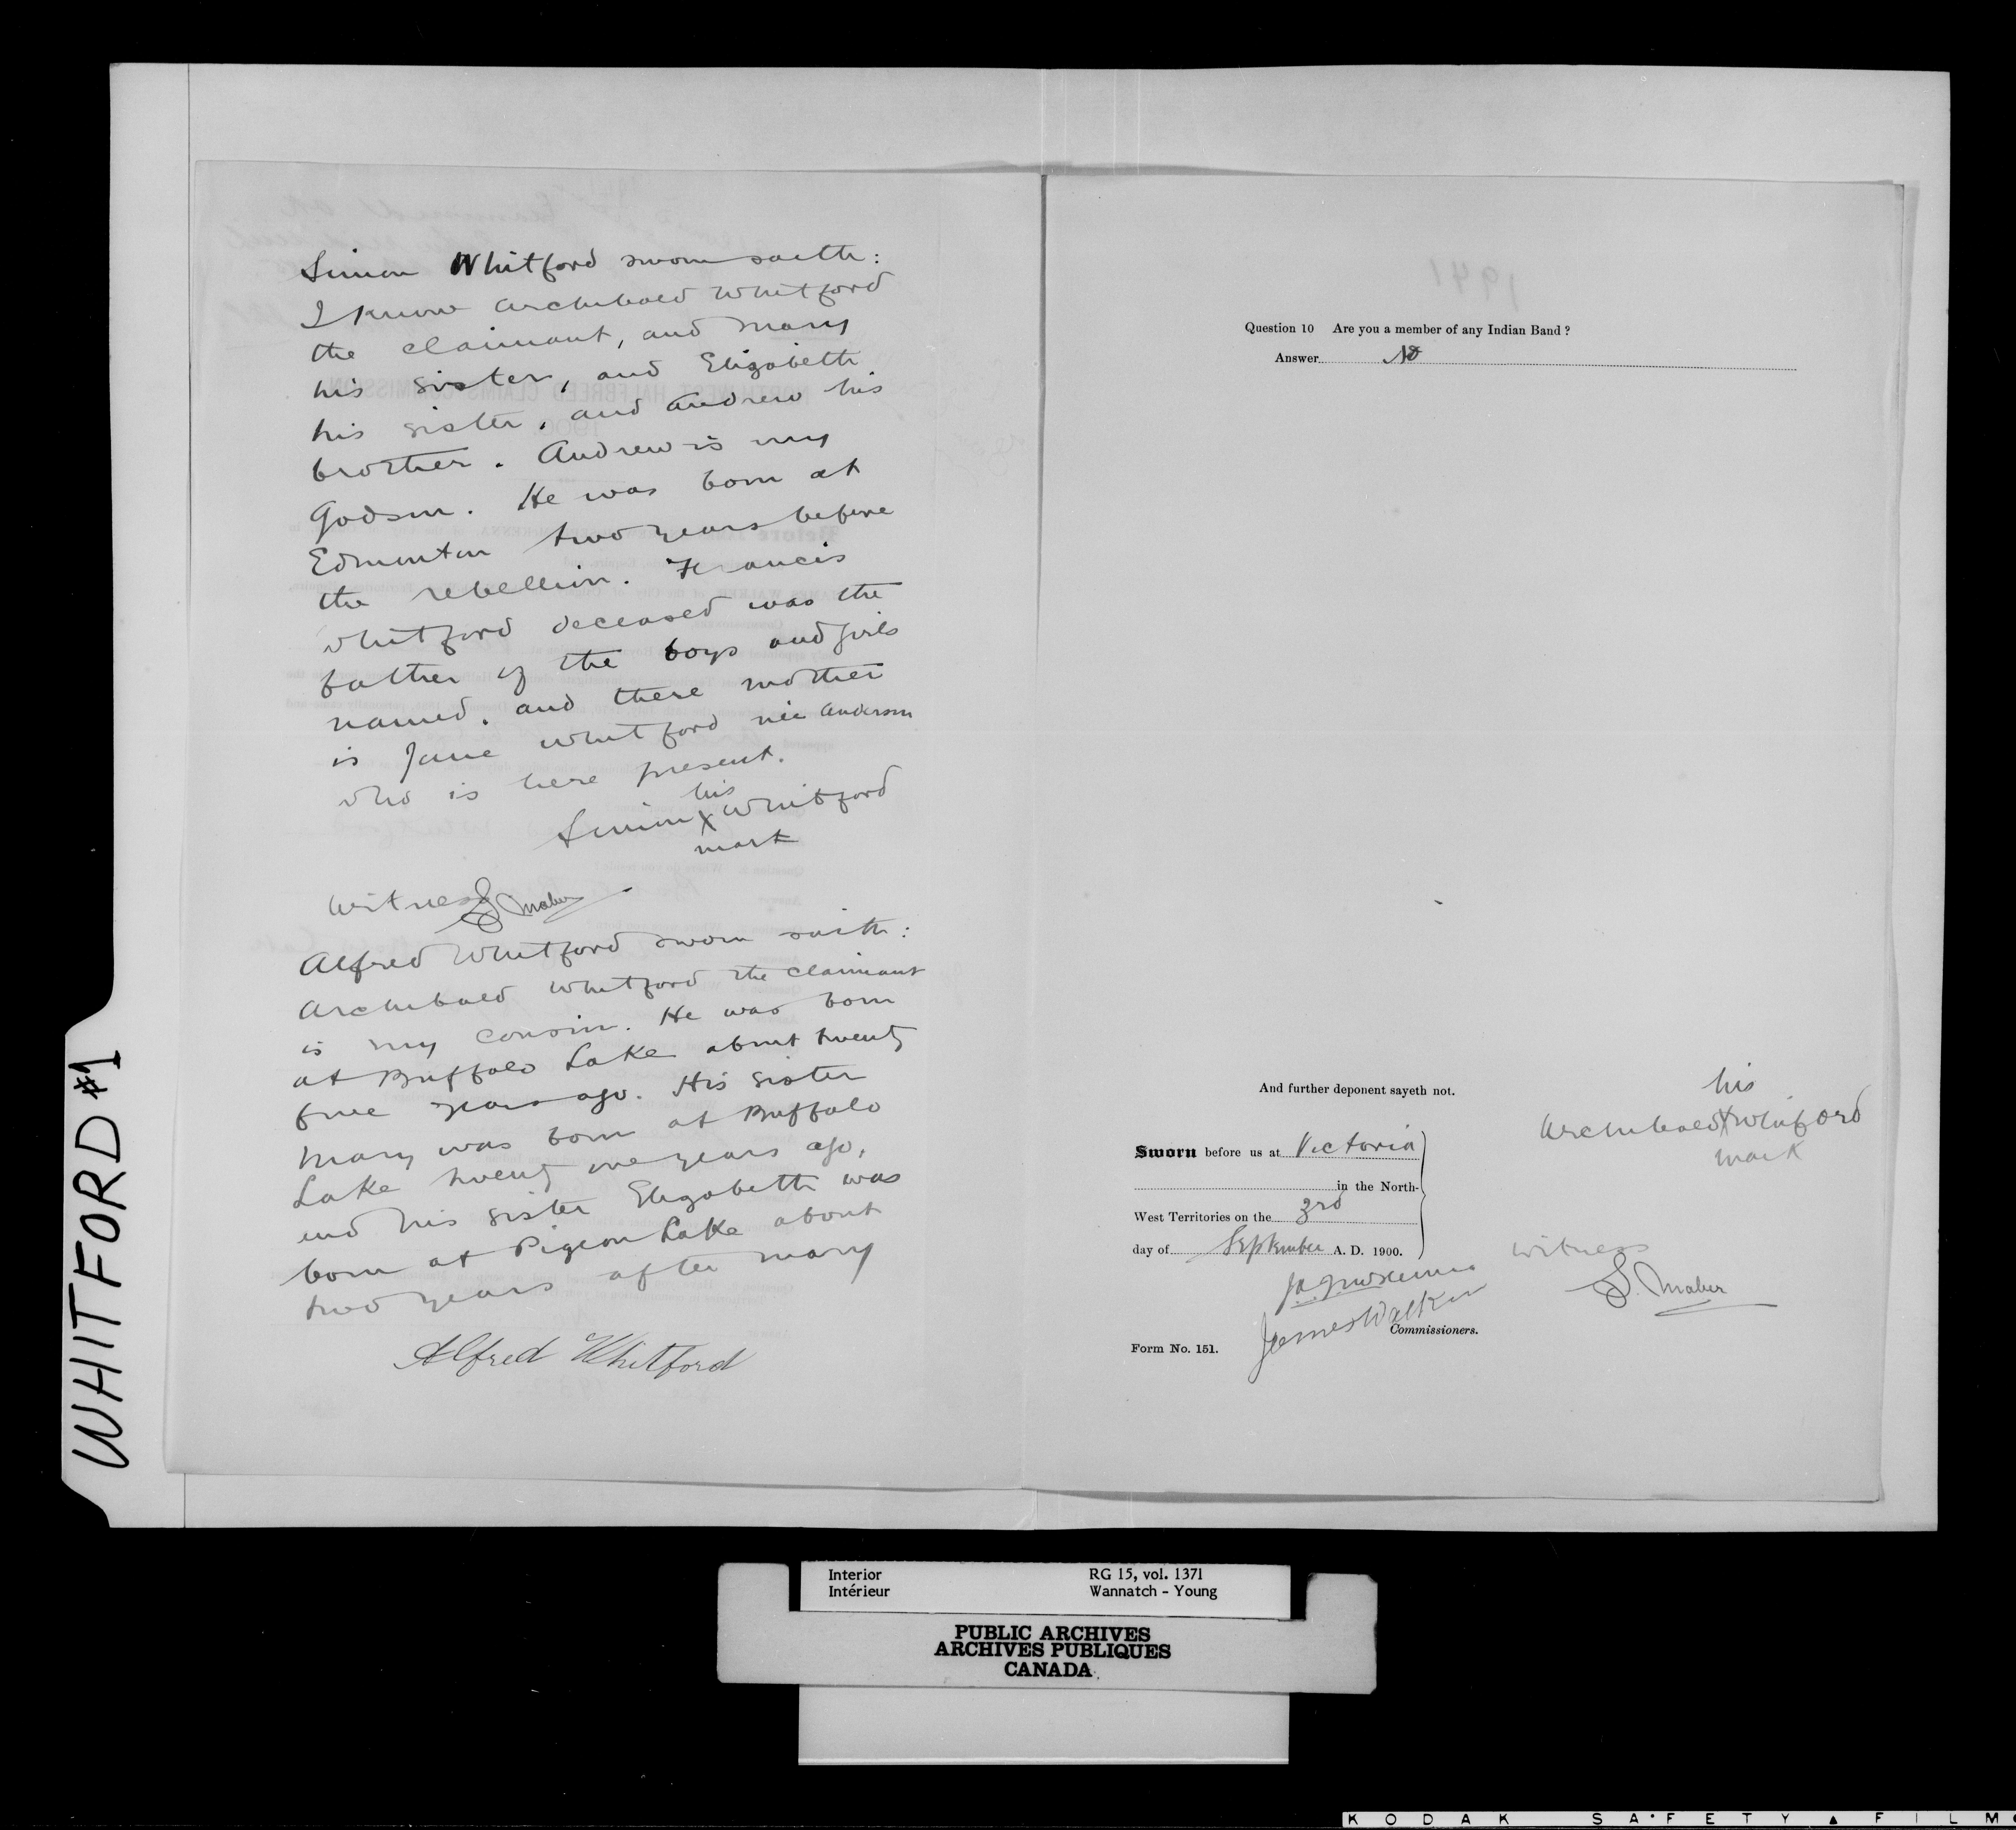 Simon Whitford sworn saith:
I know Archibald Whitford
the claimant, and Mary
his sister, and Elizabeth
his sister, and Andrew his
brother. Andrew is my
Godson. He was born at
Edmonton two years before
the rebellion. Francis
Whitford deceased was the
father of the boys and girls
named. and there mother
is Jane Whitford née Anderson
who is here present.
his
Simon X Whitford
mark
Witness
S. Maber
Alfred Whitford sworn saith:
Archibald Whitford the claimant
is my cousin. He was born
at Buffalo Lake about twenty
five years ago. His sister
Mary was born at Buffalo
Lake twenty one years ago,
and his sister Elizabeth was
born at Pigeon Lake about
two years after Mary
Alfred Whitford
1941
Question 10 Are you a member of any Indian Band?
Answer No
And further deponent sayeth not.
his
Archibald X Whitford
mark
Sworn before us at Victoria
in the North-
West Territories on the 3rd
day of September A. D. 1900.
witness
S. Maber
James Walker
Commissioners.
Form No. 151.
WHITFORD #1
Interior RG 15, vol. 1371
Intérieur Wannatch - Young
PUBLIC ARCHIVES
ARCHIVES PUBLIQUES
CANADA
KODAK SAFETY ▲ FILM